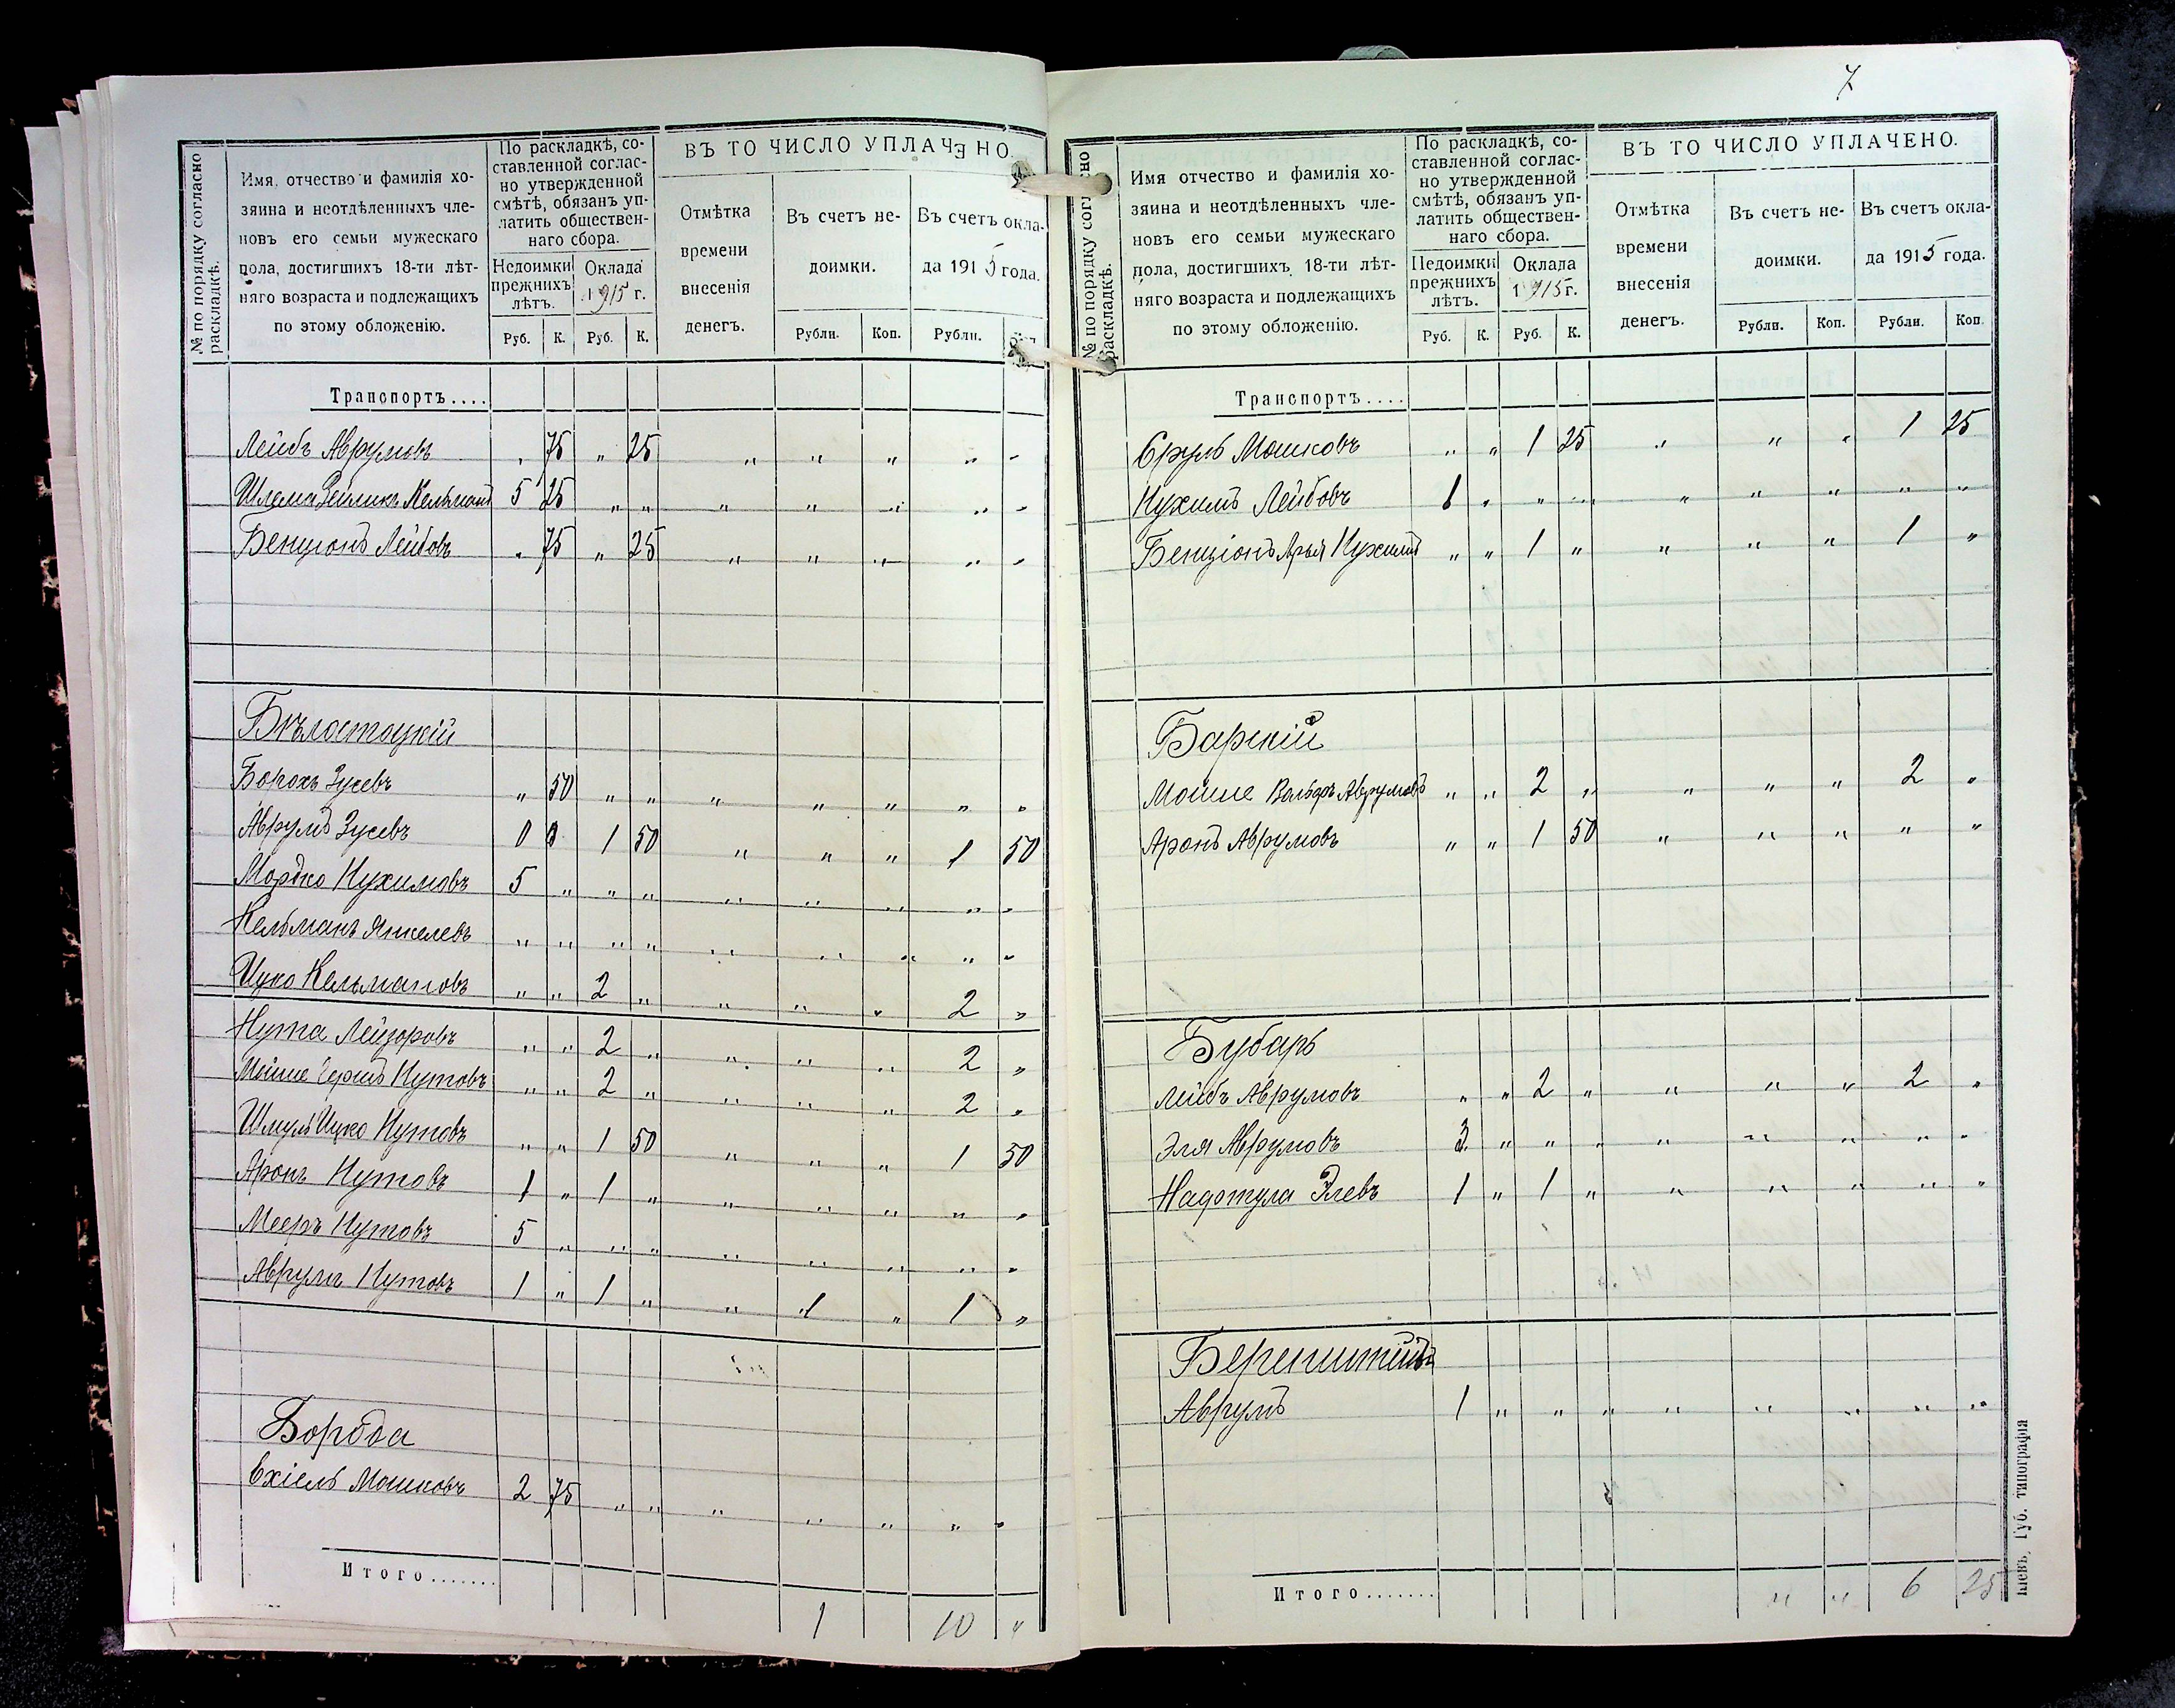 № по порядку согласно раскладкѣ.
Имя, отчество и фамилія хо-
зяина и неотдѣленныхъ чле-
новъ его семьи мужескаго
пола, достигшихъ 18-ти лѣт-
няго возраста и подлежащихъ
по этому обложенію.
По раскладкѣ, со-
ставленной соглас-
но утвержденной
смѣтѣ, обязанъ уп-
латить обществен-
наго сбора.
Недоимки прежнихъ лѣтъ.
Оклада 1915 г.
Руб. К. Руб. К.
ВЪ ТО ЧИСЛО УПЛАЧЕНО.
Отмѣтка
времени
внесенія
денегъ.
Въ счетъ не-
доимки.
Въ счетъ окла-
да 1915 года.
Рубли. Коп. Рубли.
Транспортъ....
Лейбъ Аврумовъ „ 75 „ 25 „ „ „ „ „
Шлема Зейликъ Кельмановъ 5 25 „ „ „ „ „ „ „
Бенціонъ Лейбовъ „ 75 „ 25 „ „ „ „ „
Бѣлостоцкій
Борохъ Зусевъ „ 50 „ „ „ „ „ „ „
Аврумъ Зусевъ 1 50 „ „ „ 1 50
Мордко Нухимовъ 5 „ „ „ „ „ „ „ „
Кельманъ Янкелевъ „ „ „ „ „ „ „ „ „
Ицко Кельмановъ „ „ 2 „ „ „ „ 2 „
Нута Лейзоровъ „ „ 2 „ „ „ „ 2 „
Мойше Гершъ Нутовъ „ „ 2 „ „ „ „ 2 „
Шмуль Ицко Нутовъ „ „ 1 50 „ „ „ 1 50
Аронъ Нутовъ 1 „ 1 „ „ „ „ „ „
Мееръ Нутовъ 5 „ „ „ „ „ „ „ „
Аврумъ Нутовъ 1 „ 1 „ „ 1 „ 1 „
Борода
Ехіель Мошковъ 2 75 „ „ „ „ „ „ „
Итого.......
1 10 „
7
№ по порядку согласно раскладкѣ.
Имя, отчество и фамилія хо-
зяина и неотдѣленныхъ чле-
новъ его семьи мужескаго
пола, достигшихъ 18-ти лѣт-
няго возраста и подлежащихъ
по этому обложенію.
По раскладкѣ, со-
ставленной соглас-
но утвержденной
смѣтѣ, обязанъ уп-
латить обществен-
наго сбора.
Недоимки прежнихъ лѣтъ.
Оклада 1915 г.
Руб. К. Руб. К.
ВЪ ТО ЧИСЛО УПЛАЧЕНО.
Отмѣтка
времени
внесенія
денегъ.
Въ счетъ не-
доимки.
Въ счетъ окла-
да 1915 года.
Рубли. Коп. Рубли. Коп.
Транспортъ....
Сруль Мошковъ „ „ 1 25 „ „ „ 1 25
Нухимъ Лейбовъ 1 „ „ „ „ „ „ „ „
Бенціонъ Арья Нухимовъ „ „ 1 „ „ „ „ 1 „
Барскій
Мойше Вольфъ Аврумовъ „ „ 2 „ „ „ „ 2 „
Аронъ Аврумовъ „ „ 1 50 „ „ „ „ „
Бубарь
Лейбъ Аврумовъ „ „ 2 „ „ „ „ 2 „
Эля Аврумовъ 3 „ „ „ „ „ „ „ „
Нафтула Элевъ 1 „ 1 „ „ „ „ „ „
Беренштейнъ
Аврумъ 1 „ „ „ „ „ „ „ „
Итого.......
„ „ 6 25
Кіевъ, Губ. типографія